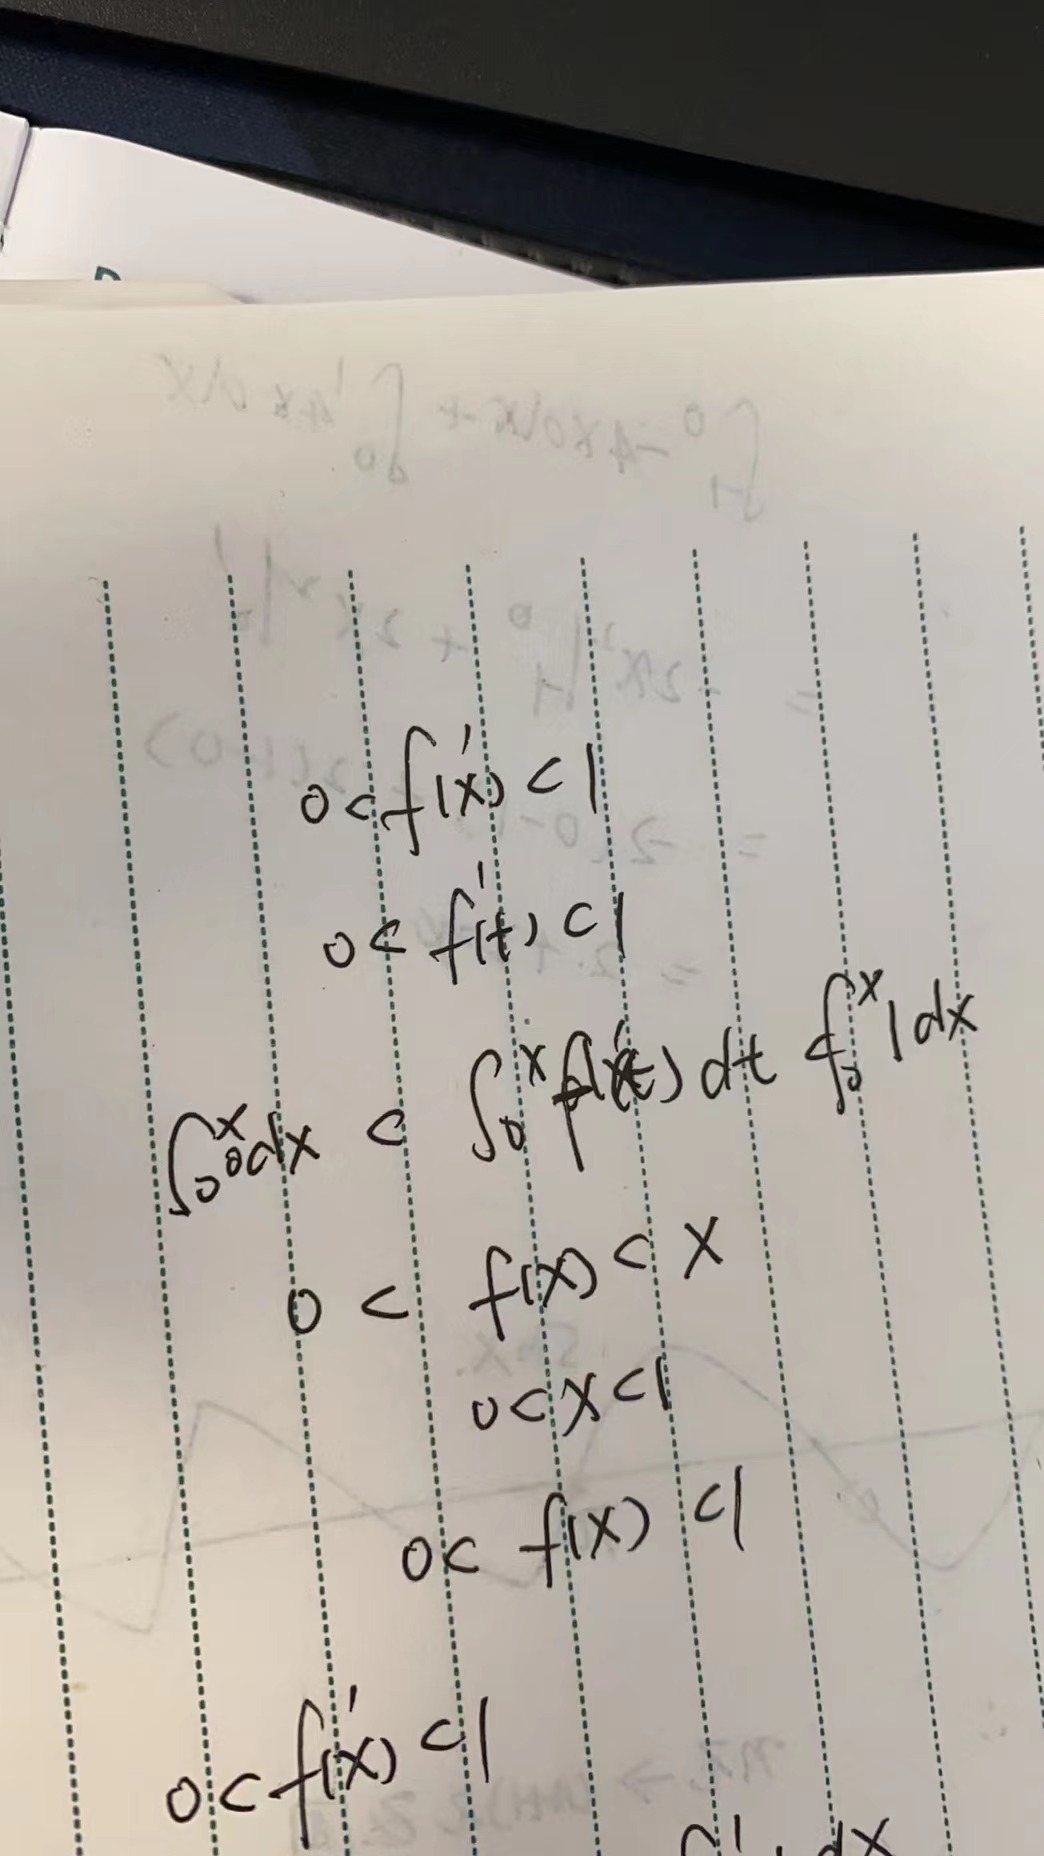 0<f'(x)<1
0<f'(t)<1
∫₀ˣ0dx < ∫₀ˣf'(t)dt < ∫₀ˣ1dx
0 < f(x) < x
0<x<1
0< f(x) <1
0<f'(x)<1